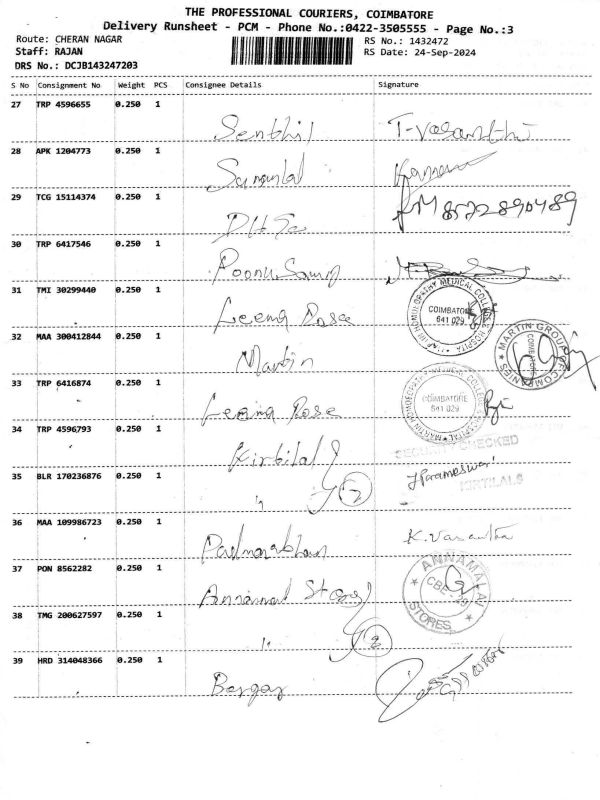 THE PROFESSIONAL COURIERS, COIMBATORE
Delivery Runsheet - PCM - Phone No.:0422-3505555 - Page No.:3
Route: CHERAN NAGAR RS No.: 1432472
Staff: RAJAN RS Date: 24-Sep-2024
DRS No.: DCJB143247203
S No Consignment No Weight PCS Consignee Details Signature
27 TRP 4596655 0.250 1
Senthil
28 APK 1204773 0.250 1
29 TCG 15114374 0.250 1
8522890489
30 TRP 6417546 0.250 1
Poonusamy
31 TMI 30299440 0.250 1
Leema Rose
COIMBATORE
641 029
32 MAA 300412844 0.250 1
Martin
MARTIN GROUP OF COMPANIES
33 TRP 6416874 0.250 1
Leema Rose
COIMBATORE
641 029
34 TRP 4596793 0.250 1
Kirtilal
SECURITY CHECKED
KIRTILALS
35 BLR 170236876 0.250 1
"
2
36 MAA 109986723 0.250 1
Padmanabhan
K. Vasantha
37 PON 8562282 0.250 1
ANNAMALAI STORES
38 TMG 200627597 0.250 1
"
2
39 HRD 314048366 0.250 1